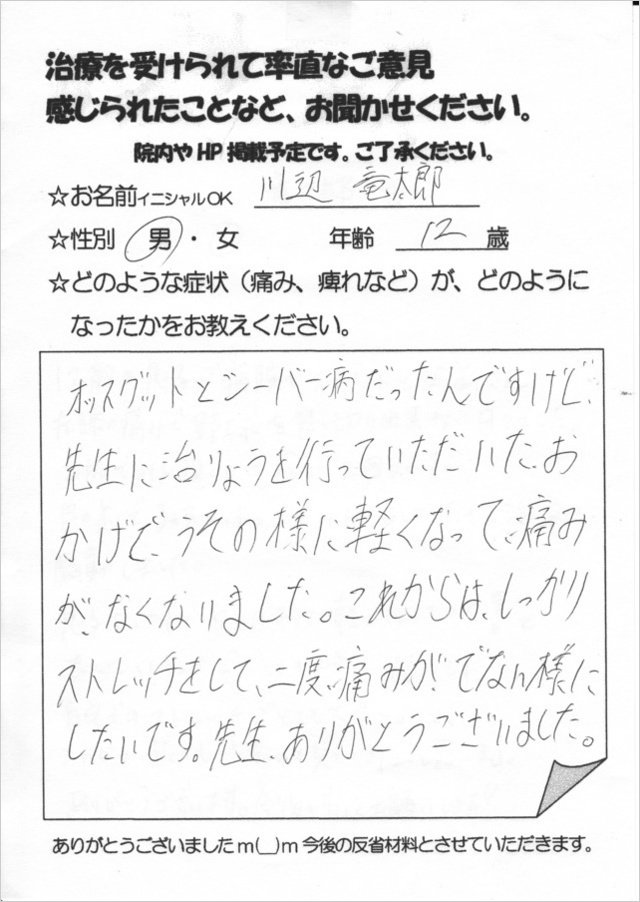 治療を受けられて率直なご意見
感じられたことなど、お聞かせください。
院内やHP掲載予定です。ご了承ください。
☆お名前イニシャルOK 川辺 竜太郎
☆性別 男・女 年齢 12 歳
☆どのような症状（痛み、痺れなど）が、どのように
なったかをお教えください。
オッスグットとシーバー病だったんですけど、
先生に治りょうを行っていただいた、お
かげで、うその様に軽くなって、痛み
が、なくなりました。これからは、しっかり
ストレッチをして、二度、痛みがでない様に
したいです。先生、ありがとうございました。
ありがとうございましたm(__)m今後の反省材料とさせていただきます。